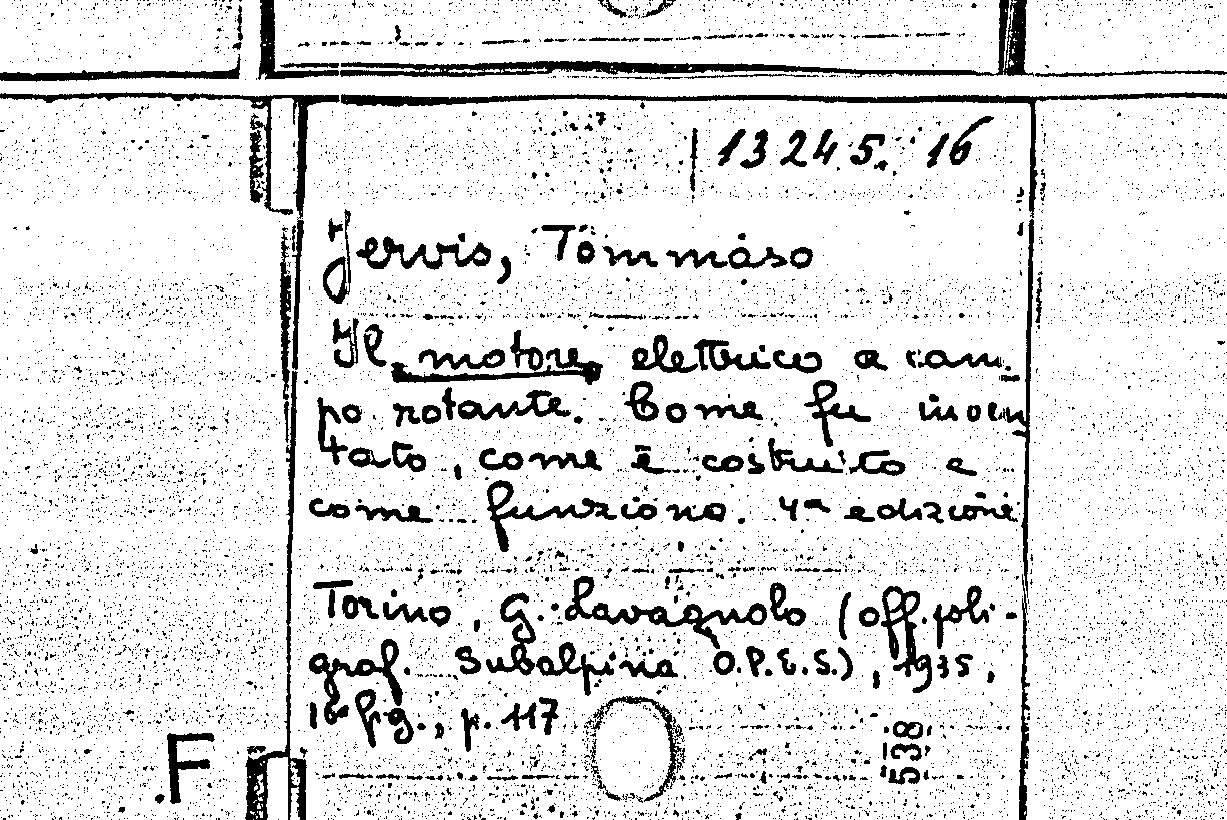 13245. 16
Jervis, Tommaso
Il motore elettrico a cam-
po rotante. Come fu inven
tato, come è costruito e
come funziona. 4ª edizione
Torino, G. Lavagnolo (off. poli-
graf. Subalpina O.P.E.S.), 1935,
16º fig., p. 117
538
F